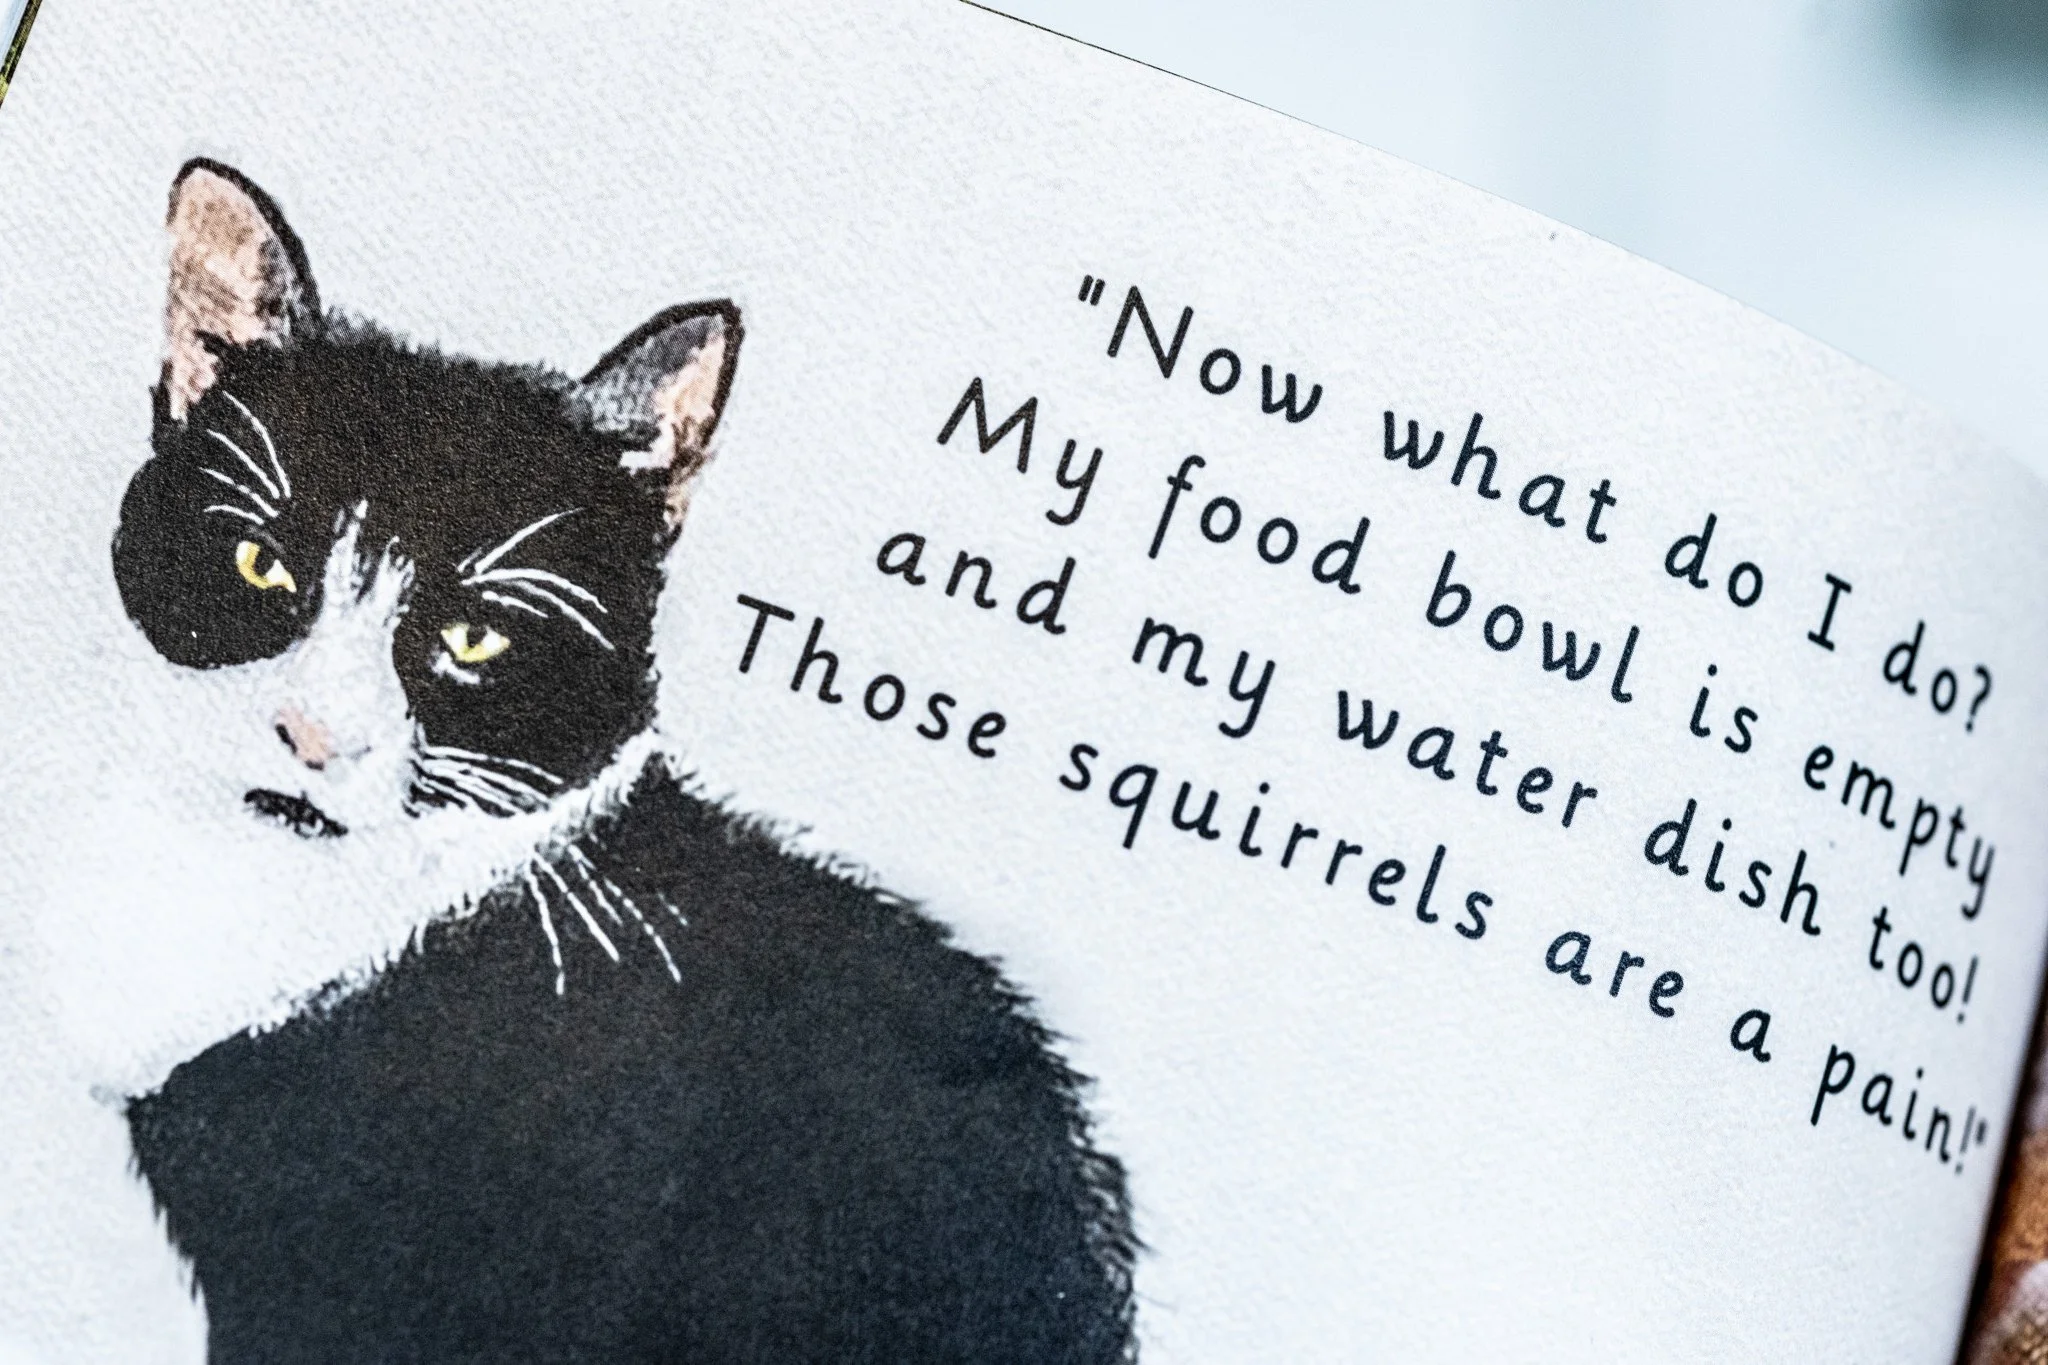 "Now what do I do?
My food bowl is empty
and my water dish too!
Those squirrels are a pain!"